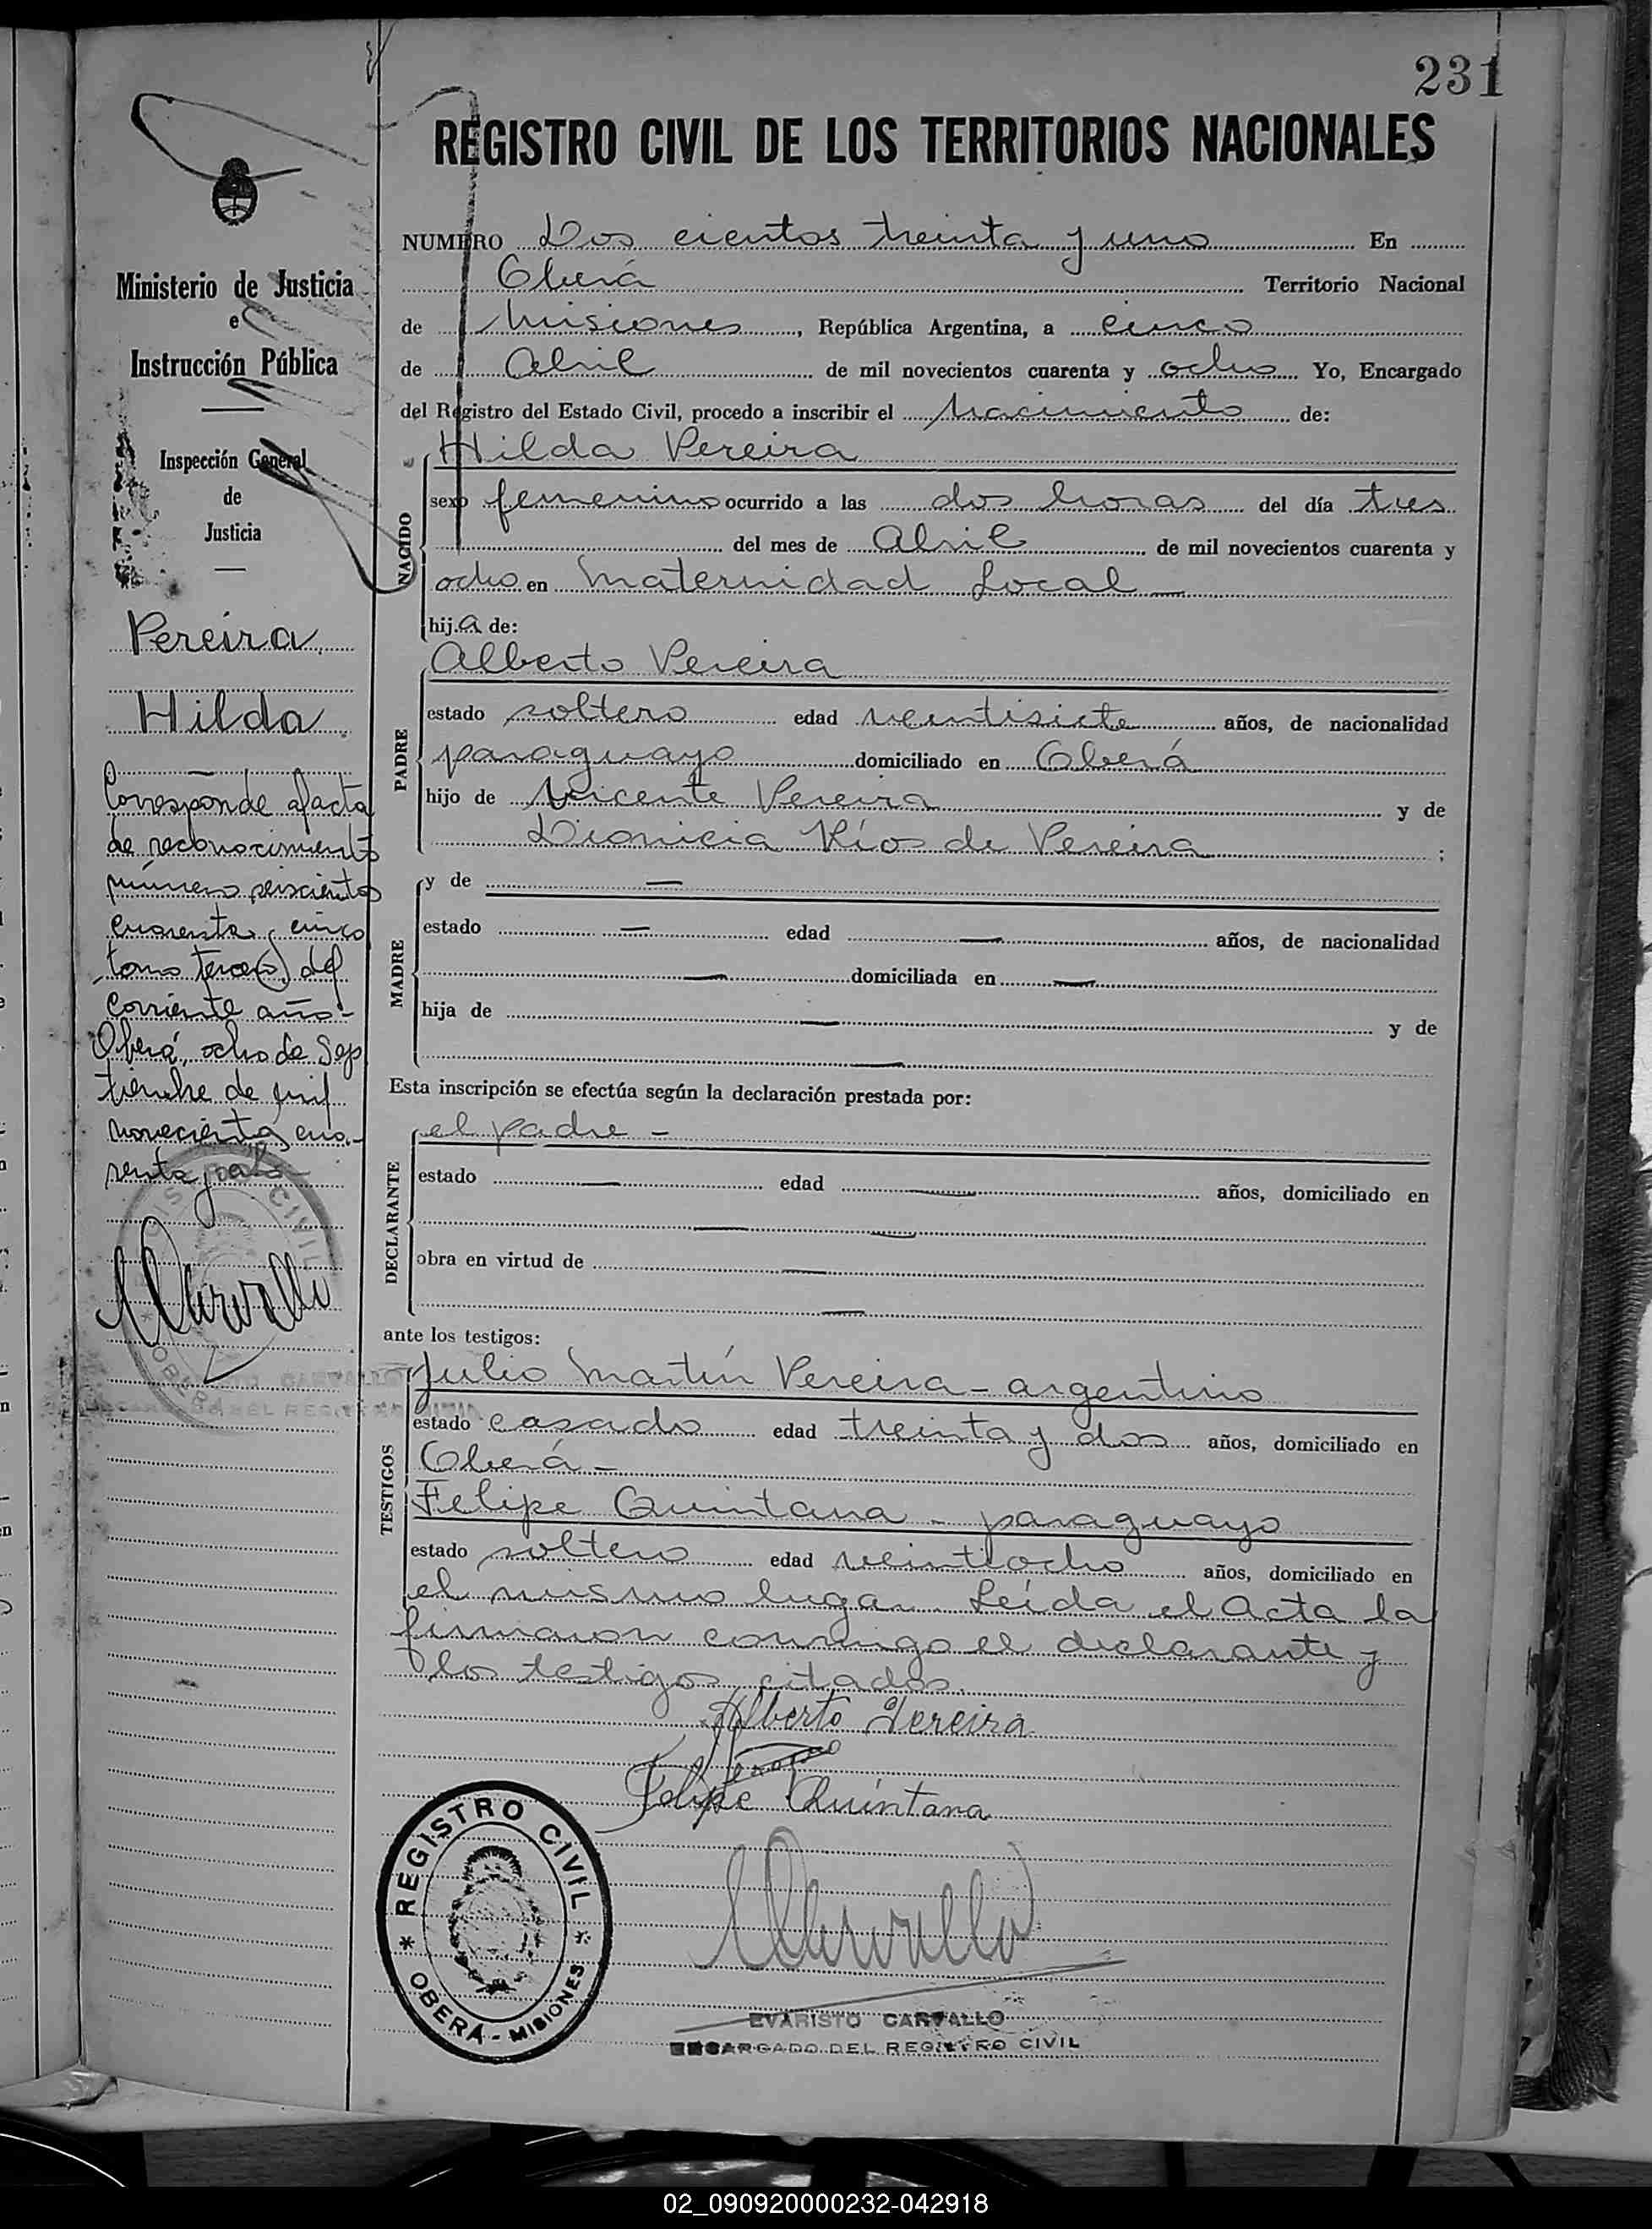 231
REGISTRO CIVIL DE LOS TERRITORIOS NACIONALES
Ministerio de Justicia
e
Instrucción Pública
Inspección General
de
Justicia
Pereira
Hilda
Corresponde al acta
de reconocimiento
número seiscientos
cuarenta y cinco
tomo tercero del
corriente año-
Oberá, ocho de Sep
tiembre de mil
novecientos cua-
renta y ocho
NUMERO Dos cientos treinta y uno En
Oberá Territorio Nacional
de Misiones, República Argentina, a cinco
de Abril de mil novecientos cuarenta y ocho Yo, Encargado
del Registro del Estado Civil, procedo a inscribir el nacimiento de:
NACIDO
Hilda Pereira
sexo femenino ocurrido a las dos horas del día tres
del mes de Abril de mil novecientos cuarenta y
ocho en Maternidad Local —
hij.a de:
PADRE
Alberto Pereira
estado soltero edad veintisiete años, de nacionalidad
paraguayo domiciliado en Oberá
hijo de Vicente Pereira y de
Dionicia Ríos de Pereira ;
MADRE
y de —
estado — edad — años, de nacionalidad
— domiciliada en —
hija de — y de
—
Esta inscripción se efectúa según la declaración prestada por:
DECLARANTE
el padre -
estado — edad — años, domiciliado en
— —
obra en virtud de —
—
ante los testigos:
TESTIGOS
Julio Martín Pereira - argentino
estado casado edad treinta y dos años, domiciliado en
Oberá -
Felipe Quintana - paraguayo
estado soltero edad veintiocho años, domiciliado en
el mismo lugar. Leída el Acta la
firmaron conmigo el declarante y
los testigos citados.
Alberto Pereira
Felipe Quintana
REGISTRO CIVIL
OBERÁ - MISIONES
EVARISTO CARVALLO
ENCARGADO DEL REGISTRO CIVIL
02_090920000232-042918